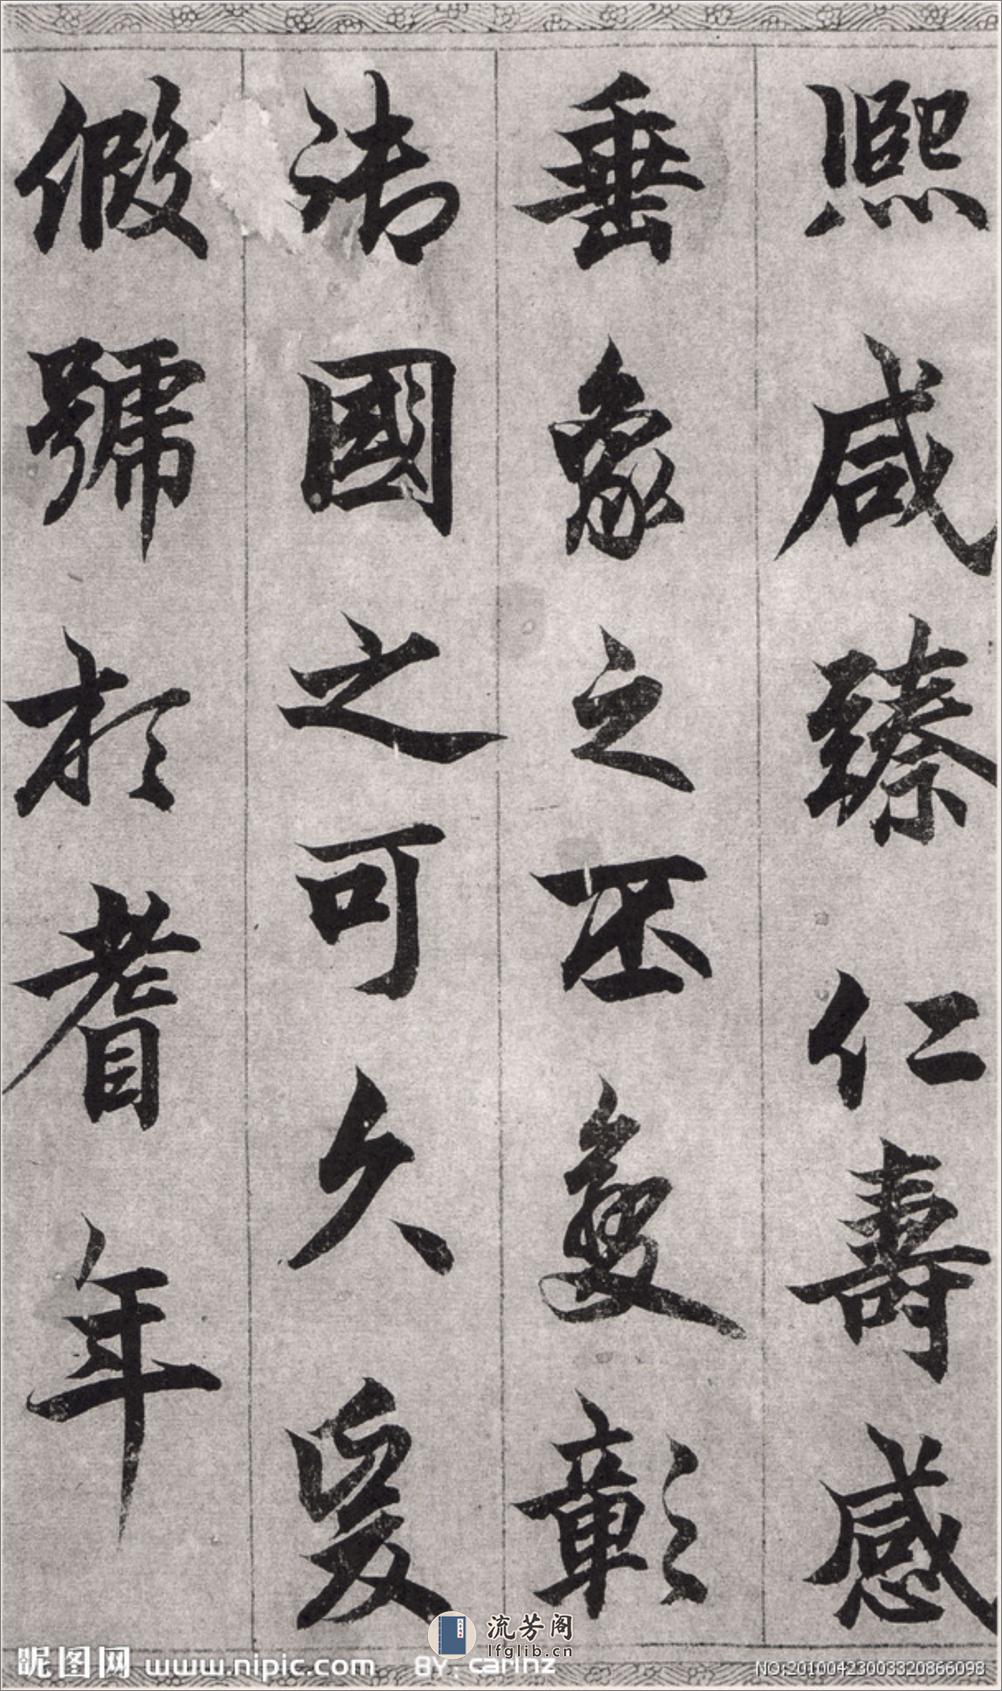 熙咸臻仁壽感
垂象之丕變彰
法國之可久爰
假號於耆年
流芳阁
lfglib.cn
昵图网 www.nipic.com BY:carinz
NO:20100423003320866098